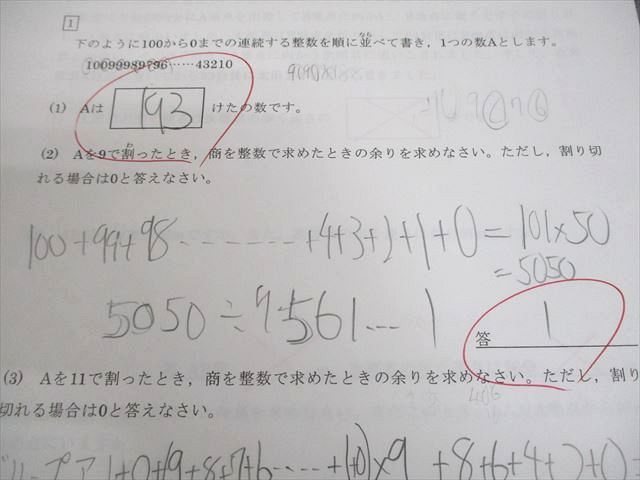 1
下のように100から0までの連続する整数を順に並べて書き，1つの数Aとします。
10099989796……43210
(1) Aは 193 けたの数です。
(2) Aを9で割ったとき，商を整数で求めたときの余りを求めなさい。ただし，割り切
れる場合は0と答えなさい。
100+99+98-------+4+3+2+1+0=101×50
=5050
5050÷9=561…1
答 1
(3) Aを11で割ったとき，商を整数で求めたときの余りを求めなさい。ただし，割り
切れる場合は0と答えなさい。
1+0+(9+8+7+6....+1+0)×9 +8+6+4+2+0=